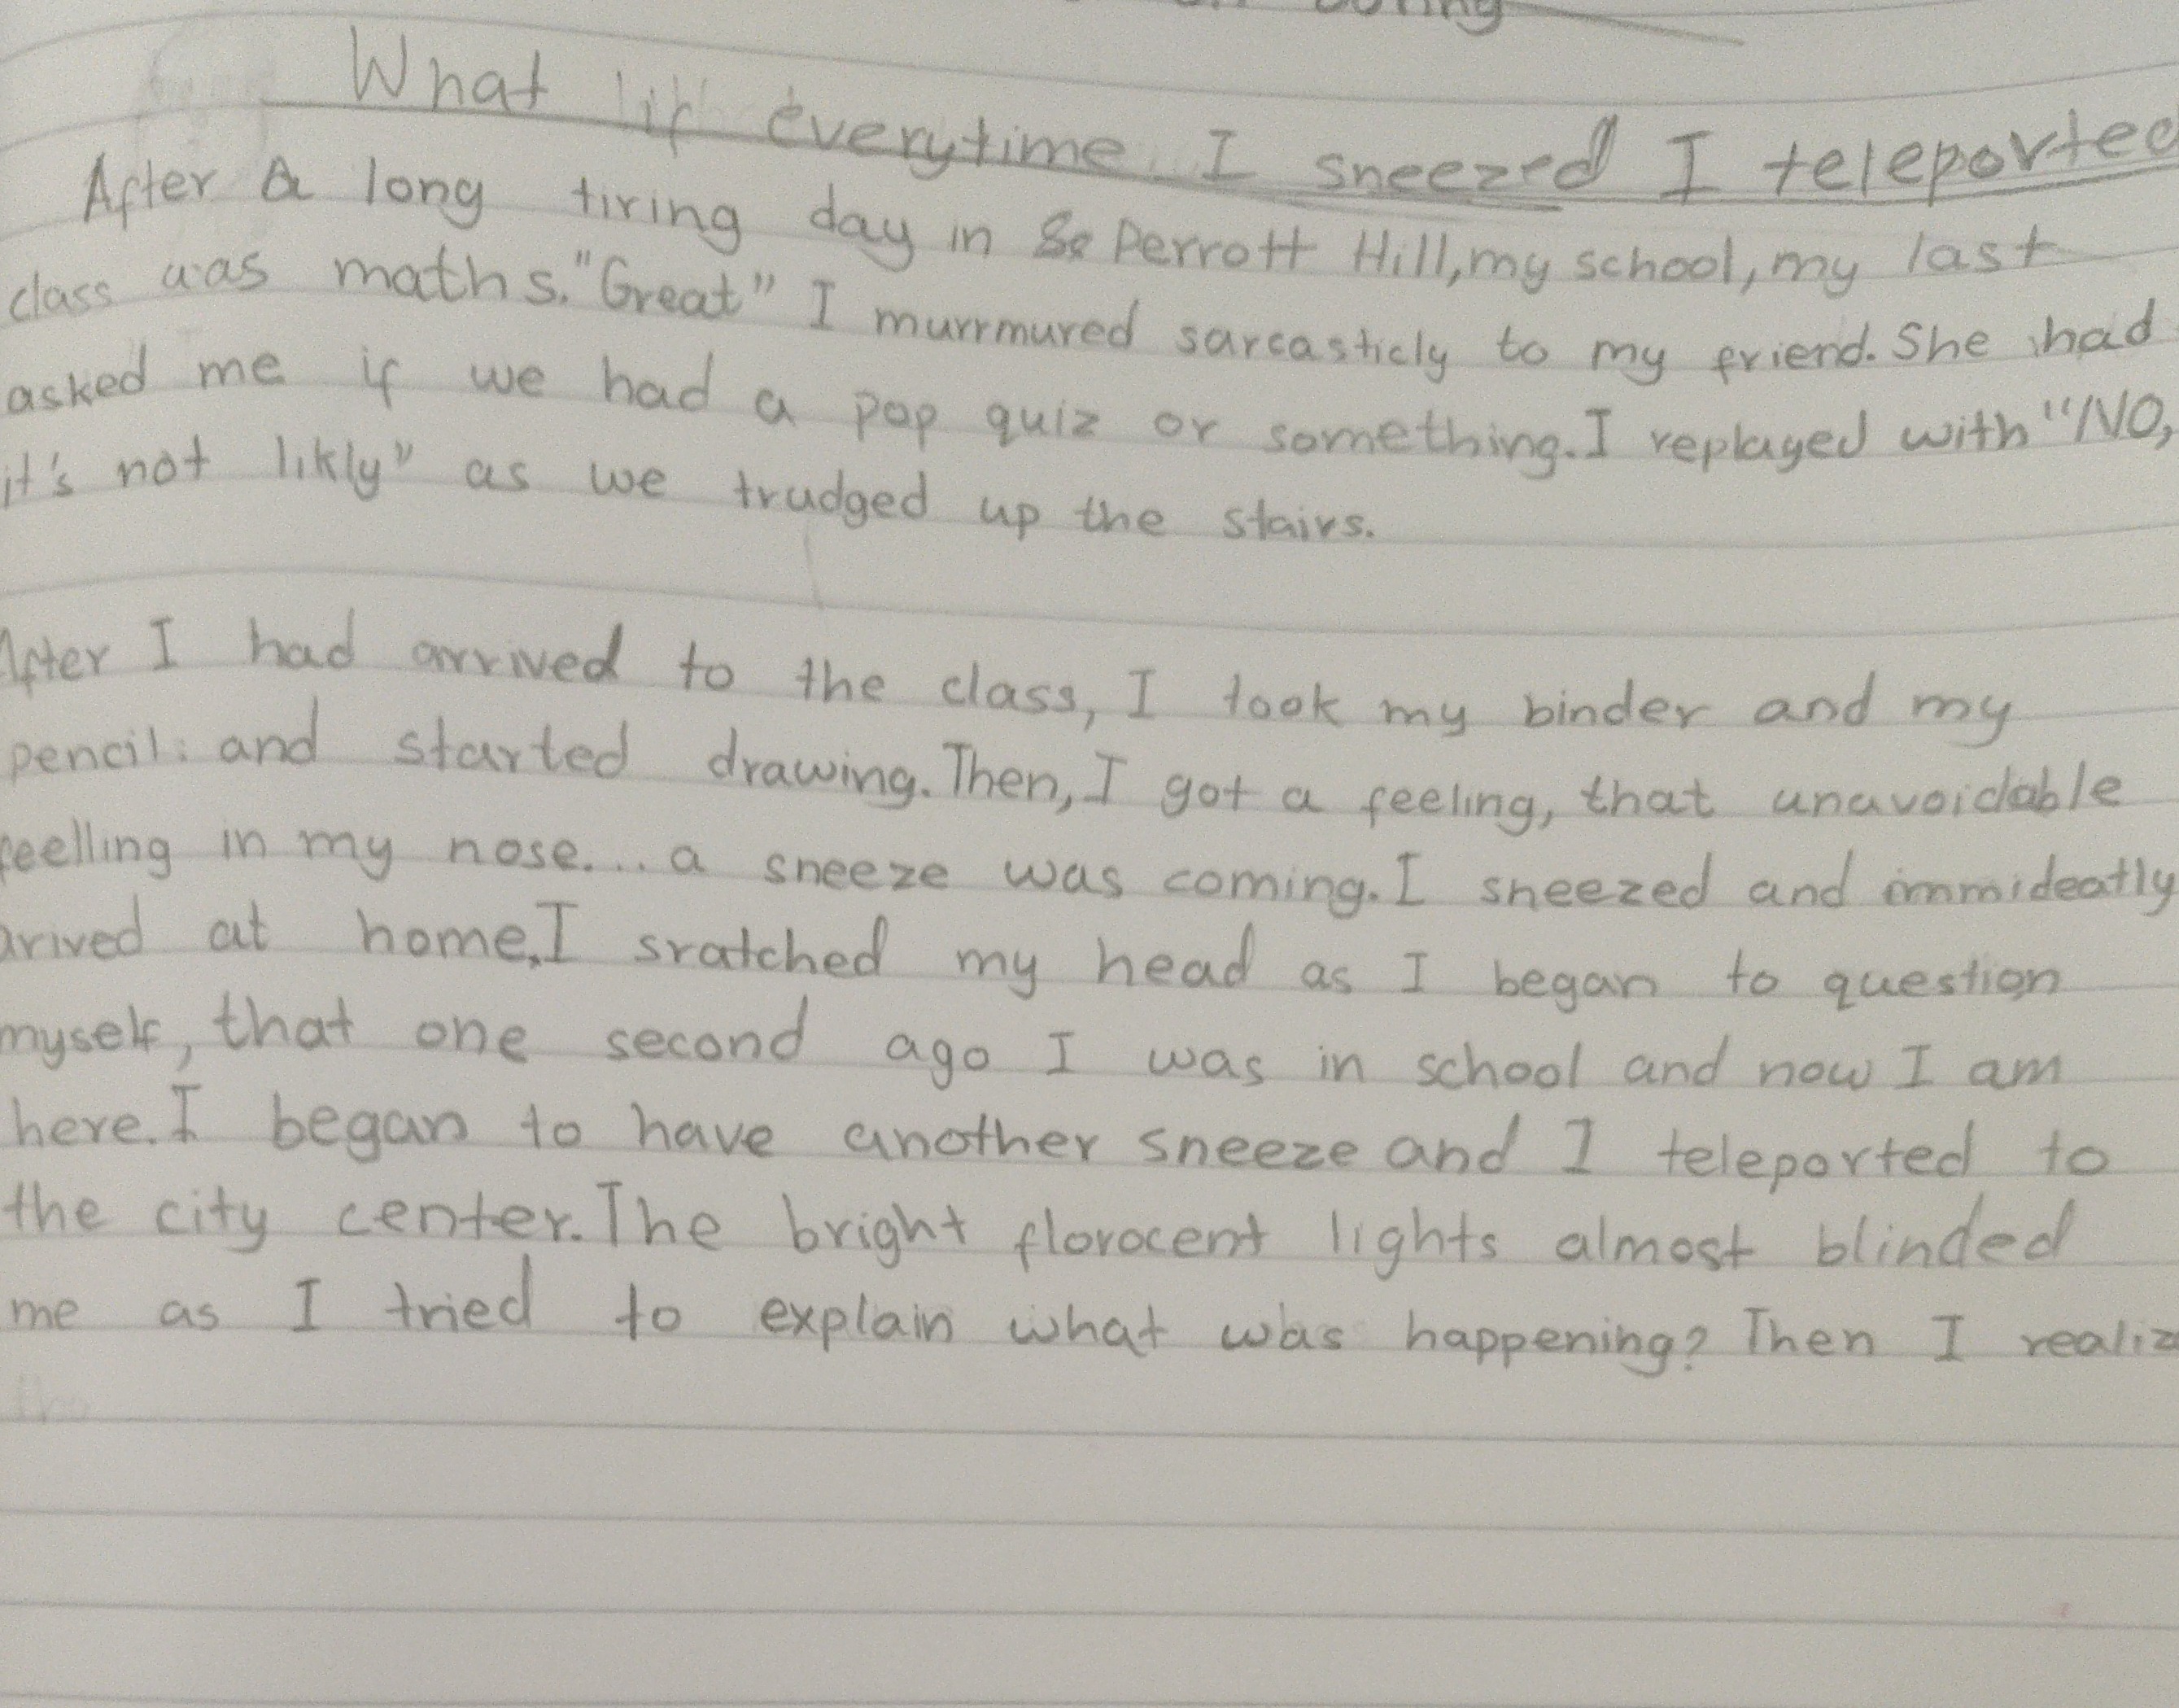 What if everytime I sneezed I teleported
After a long tiring day in Perrott Hill, my school, my last
class was maths. "Great" I murrmured sarcasticly to my friend. She had
asked me if we had a pop quiz or something. I replayed with "NO,
it's not likly" as we trudged up the stairs.
After I had arrived to the class, I took my binder and my
pencil and started drawing. Then, I got a feeling, that unavoidable
feelling in my nose.... a sneeze was coming. I sneezed and immideatly
arived at home. I sratched my head as I began to question
myself, that one second ago I was in school and now I am
here. I began to have another sneeze and I teleported to
the city center. The bright florocent lights almost blinded
me as I tried to explain what was happening? Then I realiz